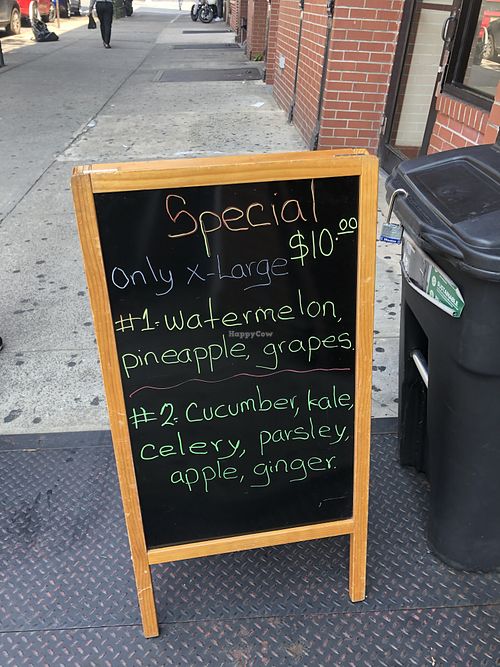 Special
$10.00
only X-Large
#1. watermelon,
pineapple, grapes.
#2. Cucumber, kale,
celery, parsley,
apple, ginger.
HappyCow